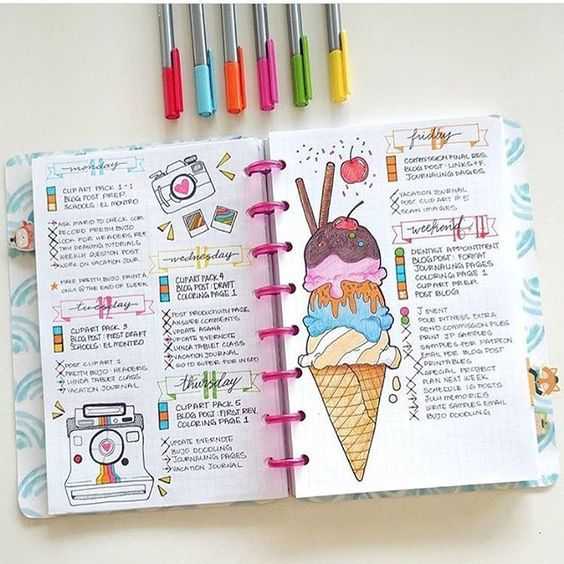 monday 11
CLIP ART PACK 1-1
BLOG POST PREP.
SCHOOLS: EL MONTRO
ASK MARIO TO CHECK
RECORD PRETTY BUJO
LOOK FOR HEADERS
TRY DRAWING TUTORIALS
WEEKLY QUESTION POST
WORK ON VACATION JOUR
MAKE PRETTY BUJO
@ THE END OF WEEK
tuesday
CLIP ART PACK 3
BLOG POST: FIRST DRAFT
SCHOOLS: EL MONTRO
POST CLIP ART 1
PRETTY BUJO: HEADERS
LYNDA TABLET CLASS
VACATION JOURNAL
wednesday
CLIPART PACK 4
BLOG POST: DRAFT
COLORING PAGE 1
POST PRODUCTIVITY PAGE
ANSWER COMMENTS
UPDATE
UPDATE EVERNOTE
LYNDA TABLET CLASS
VACATION JOURNAL
GO TO SUPER FOR
thursday
CLIPART PACK 5
BLOG POST: FIRST REV.
COLORING PAGE 1
UPDATE EVERNOTE
BUJO DOODLING
JOURNALING PAGES
VACATION JOURNAL
friday
COMMISSION FINAL RES.
BLOG POST: LINKS +
JOURNALING PAGES
VACATION JOURNAL
POST CLIP ART
SCAN IMAGES
weekend
DENTIST APPOINTMENT
BLOG POST: FORMAT
JOURNALING PAGES
COLORING PAGE 1
CLIP ART PREP.
POST BLOG!
J EVENT
POUR FITNESS EXTRA
SEND COMMISSION FILES
PRINT JAP JAPRECON
SAMPLES FOR PATREON
EMAIL FOR BLOG POST
PRINTABLES
SPECIAL PROJECT
PLAN NEXT WEEK
SCHEDULE IG POSTS
JULII MEMORIES
WRITE SAMPLES EMAIL
BUJO DOODLING